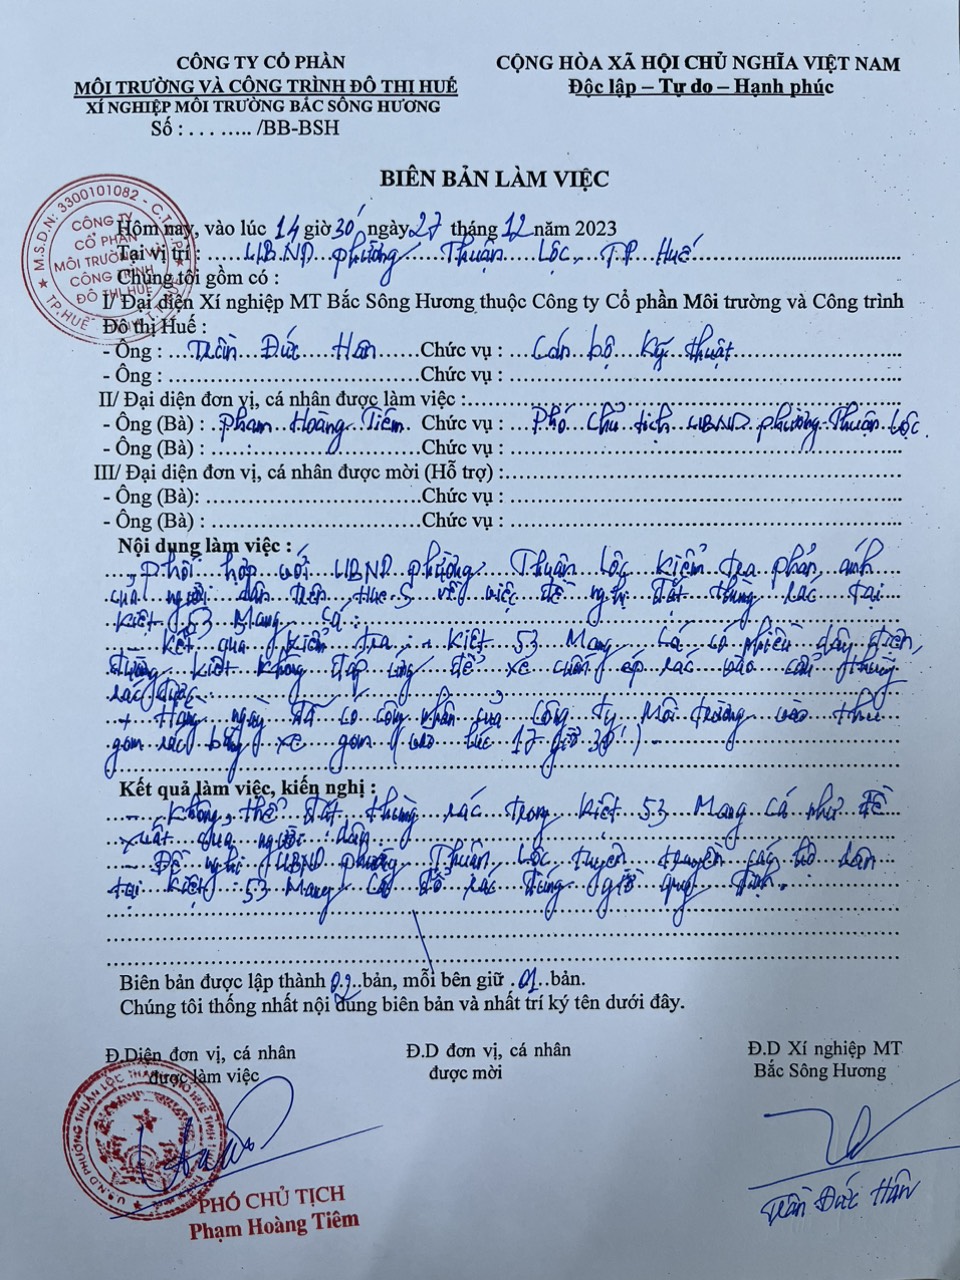 CÔNG TY CỔ PHẦN
MÔI TRƯỜNG VÀ CÔNG TRÌNH ĐÔ THỊ HUẾ
XÍ NGHIỆP MÔI TRƯỜNG BẮC SÔNG HƯƠNG
Số : . . . ….. /BB-BSH
CỘNG HÒA XÃ HỘI CHỦ NGHĨA VIỆT NAM
Độc lập – Tự do – Hạnh phúc
BIÊN BẢN LÀM VIỆC
M.S.D.N: 3300101082 - C.T.C.P
CÔNG TY
CỔ PHẦN
MÔI TRƯỜNG VÀ
CÔNG TRÌNH
ĐÔ THỊ HUẾ
TP.HUẾ
Hôm nay, vào lúc 14 giờ 30' ngày 27 tháng 12 năm 2023
Tại vị trí : UBND phường Thuận Lộc, TP Huế
Chúng tôi gồm có :
I/ Đại diện Xí nghiệp MT Bắc Sông Hương thuộc Công ty Cổ phần Môi trường và Công trình
Đô thị Huế :
- Ông : Trần Đức Hân Chức vụ : Cán bộ Kỹ thuật
- Ông : Chức vụ :
II/ Đại diện đơn vị, cá nhân được làm việc :
- Ông (Bà) : Phạm Hoàng Tiêm Chức vụ : Phó Chủ tịch UBND phường Thuận Lộc.
- Ông (Bà) : Chức vụ :
III/ Đại diện đơn vị, cá nhân được mời (Hỗ trợ) :
- Ông (Bà): Chức vụ :
- Ông (Bà) : Chức vụ :
Nội dung làm việc :
- Phối hợp với UBND phường Thuận Lộc kiểm tra phản ánh
của người dân trên Hue-S về việc đề nghị đặt thùng rác tại
kiệt 53 Mang Cá :
- Kết quả kiểm tra : Kiệt 53 Mang Cá có nhiều dây điện,
đường kiệt không đáp ứng để xe cuốn ép rác vào cẩu thùng
rác được.
+ Hàng ngày đã có công nhân của Công ty Môi trường vào thu
gom rác bằng xe gom (vào lúc 17 giờ 30')
Kết quả làm việc, kiến nghị :
- Không thể đặt thùng rác trong kiệt 53 Mang Cá như đề
xuất của người dân.
- Đề nghị UBND phường Thuận Lộc tuyên truyền các hộ dân
tại kiệt 53 Mang Cá đổ rác đúng giờ quy định.
Biên bản được lập thành 02 bản, mỗi bên giữ 01 bản.
Chúng tôi thống nhất nội dung biên bản và nhất trí ký tên dưới đây.
Đ.Diện đơn vị, cá nhân
được làm việc
Đ.D đơn vị, cá nhân
được mời
Đ.D Xí nghiệp MT
Bắc Sông Hương
U.B.N.D PHƯỜNG THUẬN LỘC THÀNH PHỐ HUẾ TỈNH
PHÓ CHỦ TỊCH
Phạm Hoàng Tiêm
Trần Đức Hân